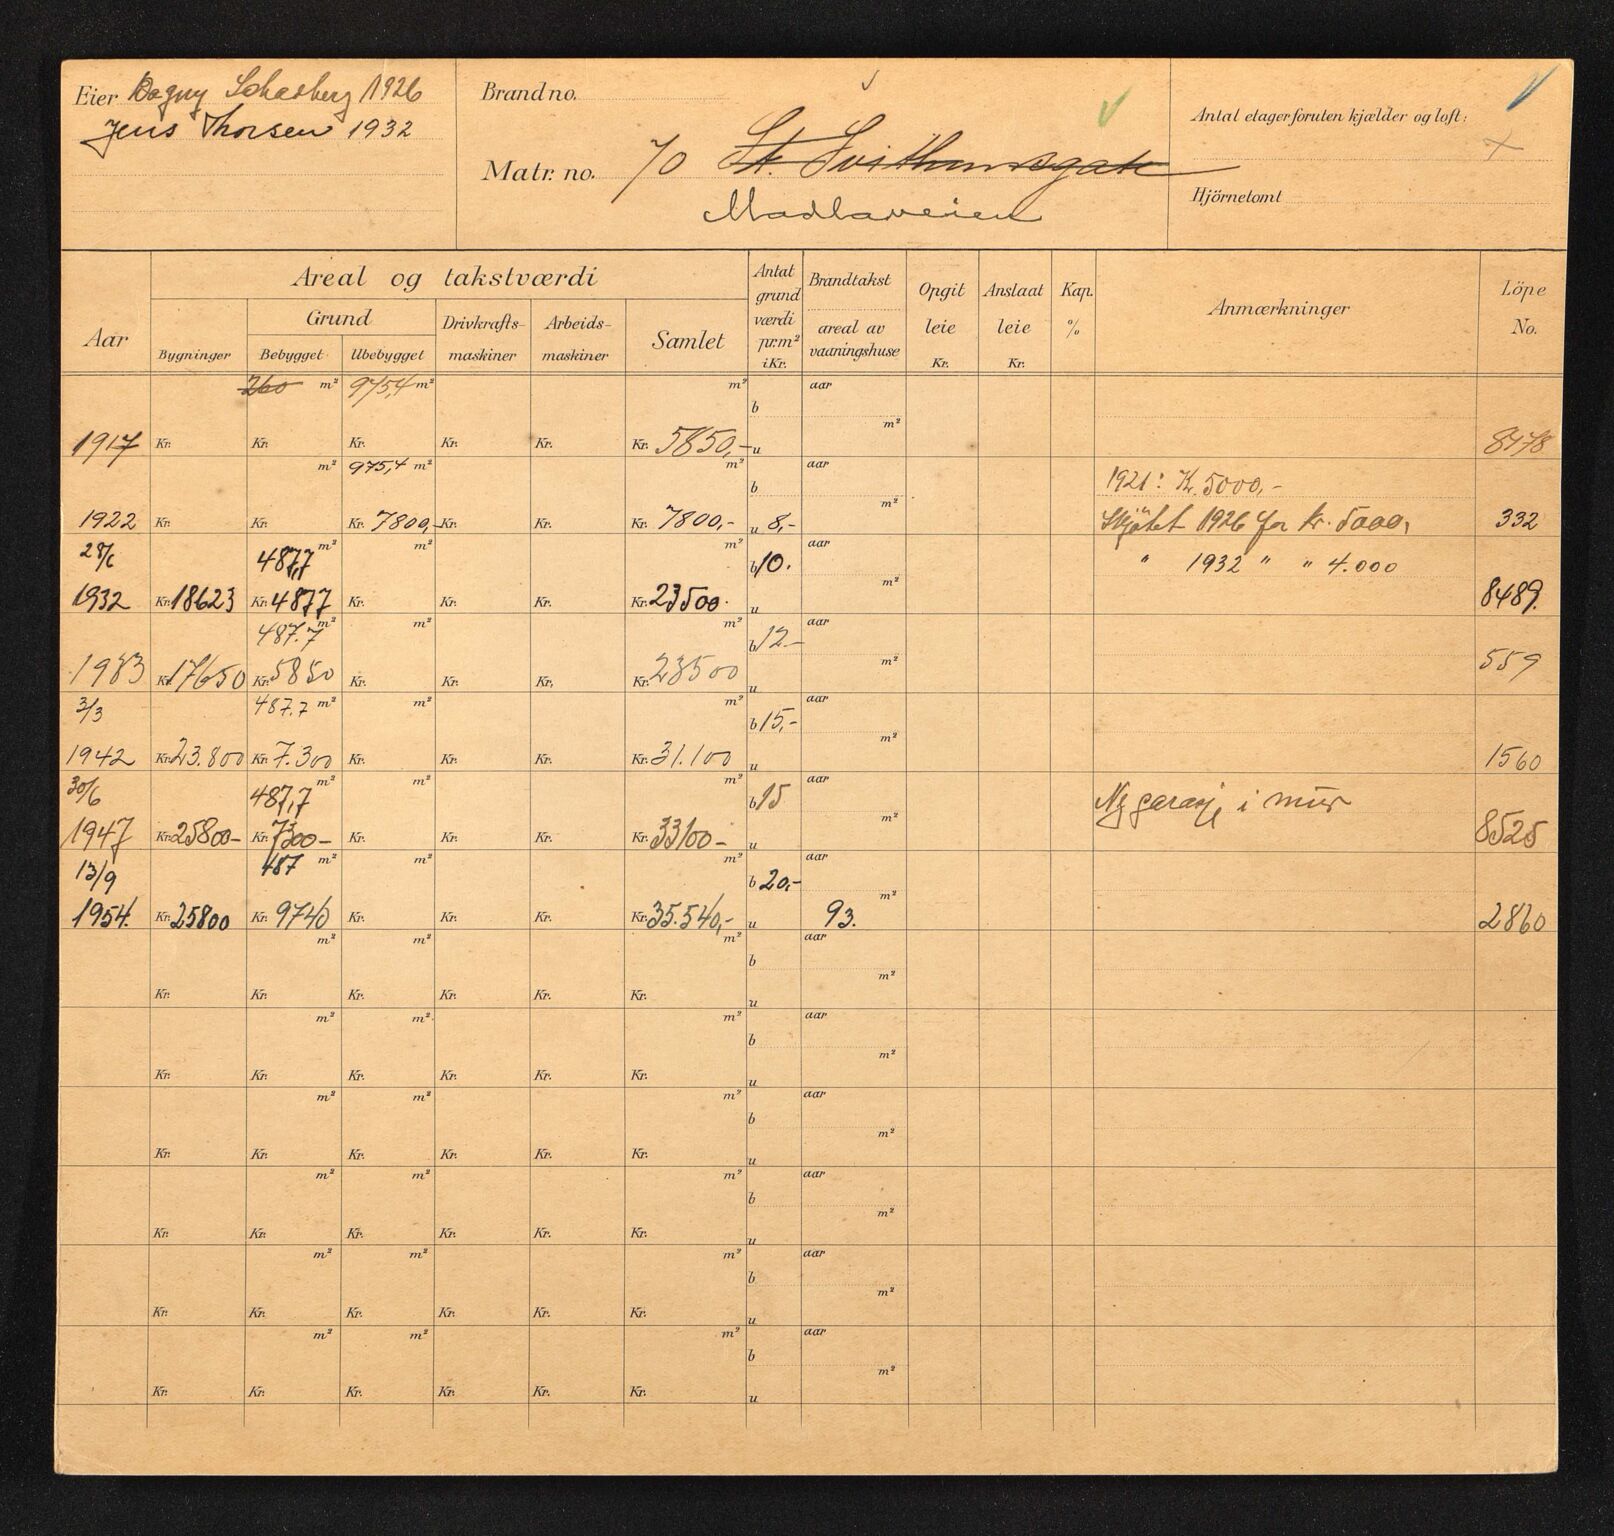 Eier Dagny Schasberg 1926
Jens Thorsen 1932
Brand no.
Matr. no. 70 St. Svithunsgate
Madlaveien
Antal etager foruten kjælder og loft:
Hjörnetomt
Aar
Areal og takstværdi
Bygninger
Grund
Bebygget Ubebygget
Drivkrafts-
maskiner
Arbeids-
maskiner
Samlet
Antat
grund
værdi
pr.m²
i Kr.
Brandtakst
areal av
vaaningshuse
Opgit
leie
Kr.
Anslaat
leie
Kr.
Kap.
%
Anmærkninger
Löpe
No.
260 m² 975,4 m² m² b aar
m²
1917 Kr. Kr. Kr. Kr. Kr. Kr. 5850,- u 8478
m² 975,4 m² m² b aar 1921: Kr. 5000,-
m²
1922 Kr. Kr. Kr. 7800,- Kr. Kr. Kr. 7800,- u 8,- Skjötet 1926 for kr. 5000, 332
28/6 487,7 m² m² m² b 10. aar " 1932 " " 4.000
m²
1932 Kr. 18623 Kr. 4877 Kr. Kr. Kr. Kr. 23500. u 8489.
487.7 m² m² m² b 12.- aar
m²
1933 Kr. 17650 Kr. 5850 Kr. Kr. Kr. Kr. 23500 u 559
3/3 487.7 m² m² m² b 15,- aar
m²
1942 Kr. 23.800 Kr. 7.300 Kr. Kr. Kr. Kr. 31.100 u 1560
30/6 487,7 m² m² m² b 15 aar Ny garasje i mur
m²
1947 Kr. 25800- Kr. 7300- Kr. Kr. Kr. Kr. 33100- u 8525
13/9 487 m² m² m² b 20,- aar
m²
1954. Kr. 25800 Kr. 9740 Kr. Kr. Kr. Kr. 35.540,- u 93. 2860
m² m² m² b aar
m²
Kr. Kr. Kr. Kr. Kr. Kr. u
m² m² m² b aar
m²
Kr. Kr. Kr. Kr. Kr. Kr. u
m² m² m² b aar
m²
Kr. Kr. Kr. Kr. Kr. Kr. u
m² m² m² b aar
m²
Kr. Kr. Kr. Kr. Kr. Kr. u
m² m² m² b aar
m²
Kr. Kr. Kr. Kr. Kr. Kr. u
m² m² m² b aar
m²
Kr. Kr. Kr. Kr. Kr. Kr. u